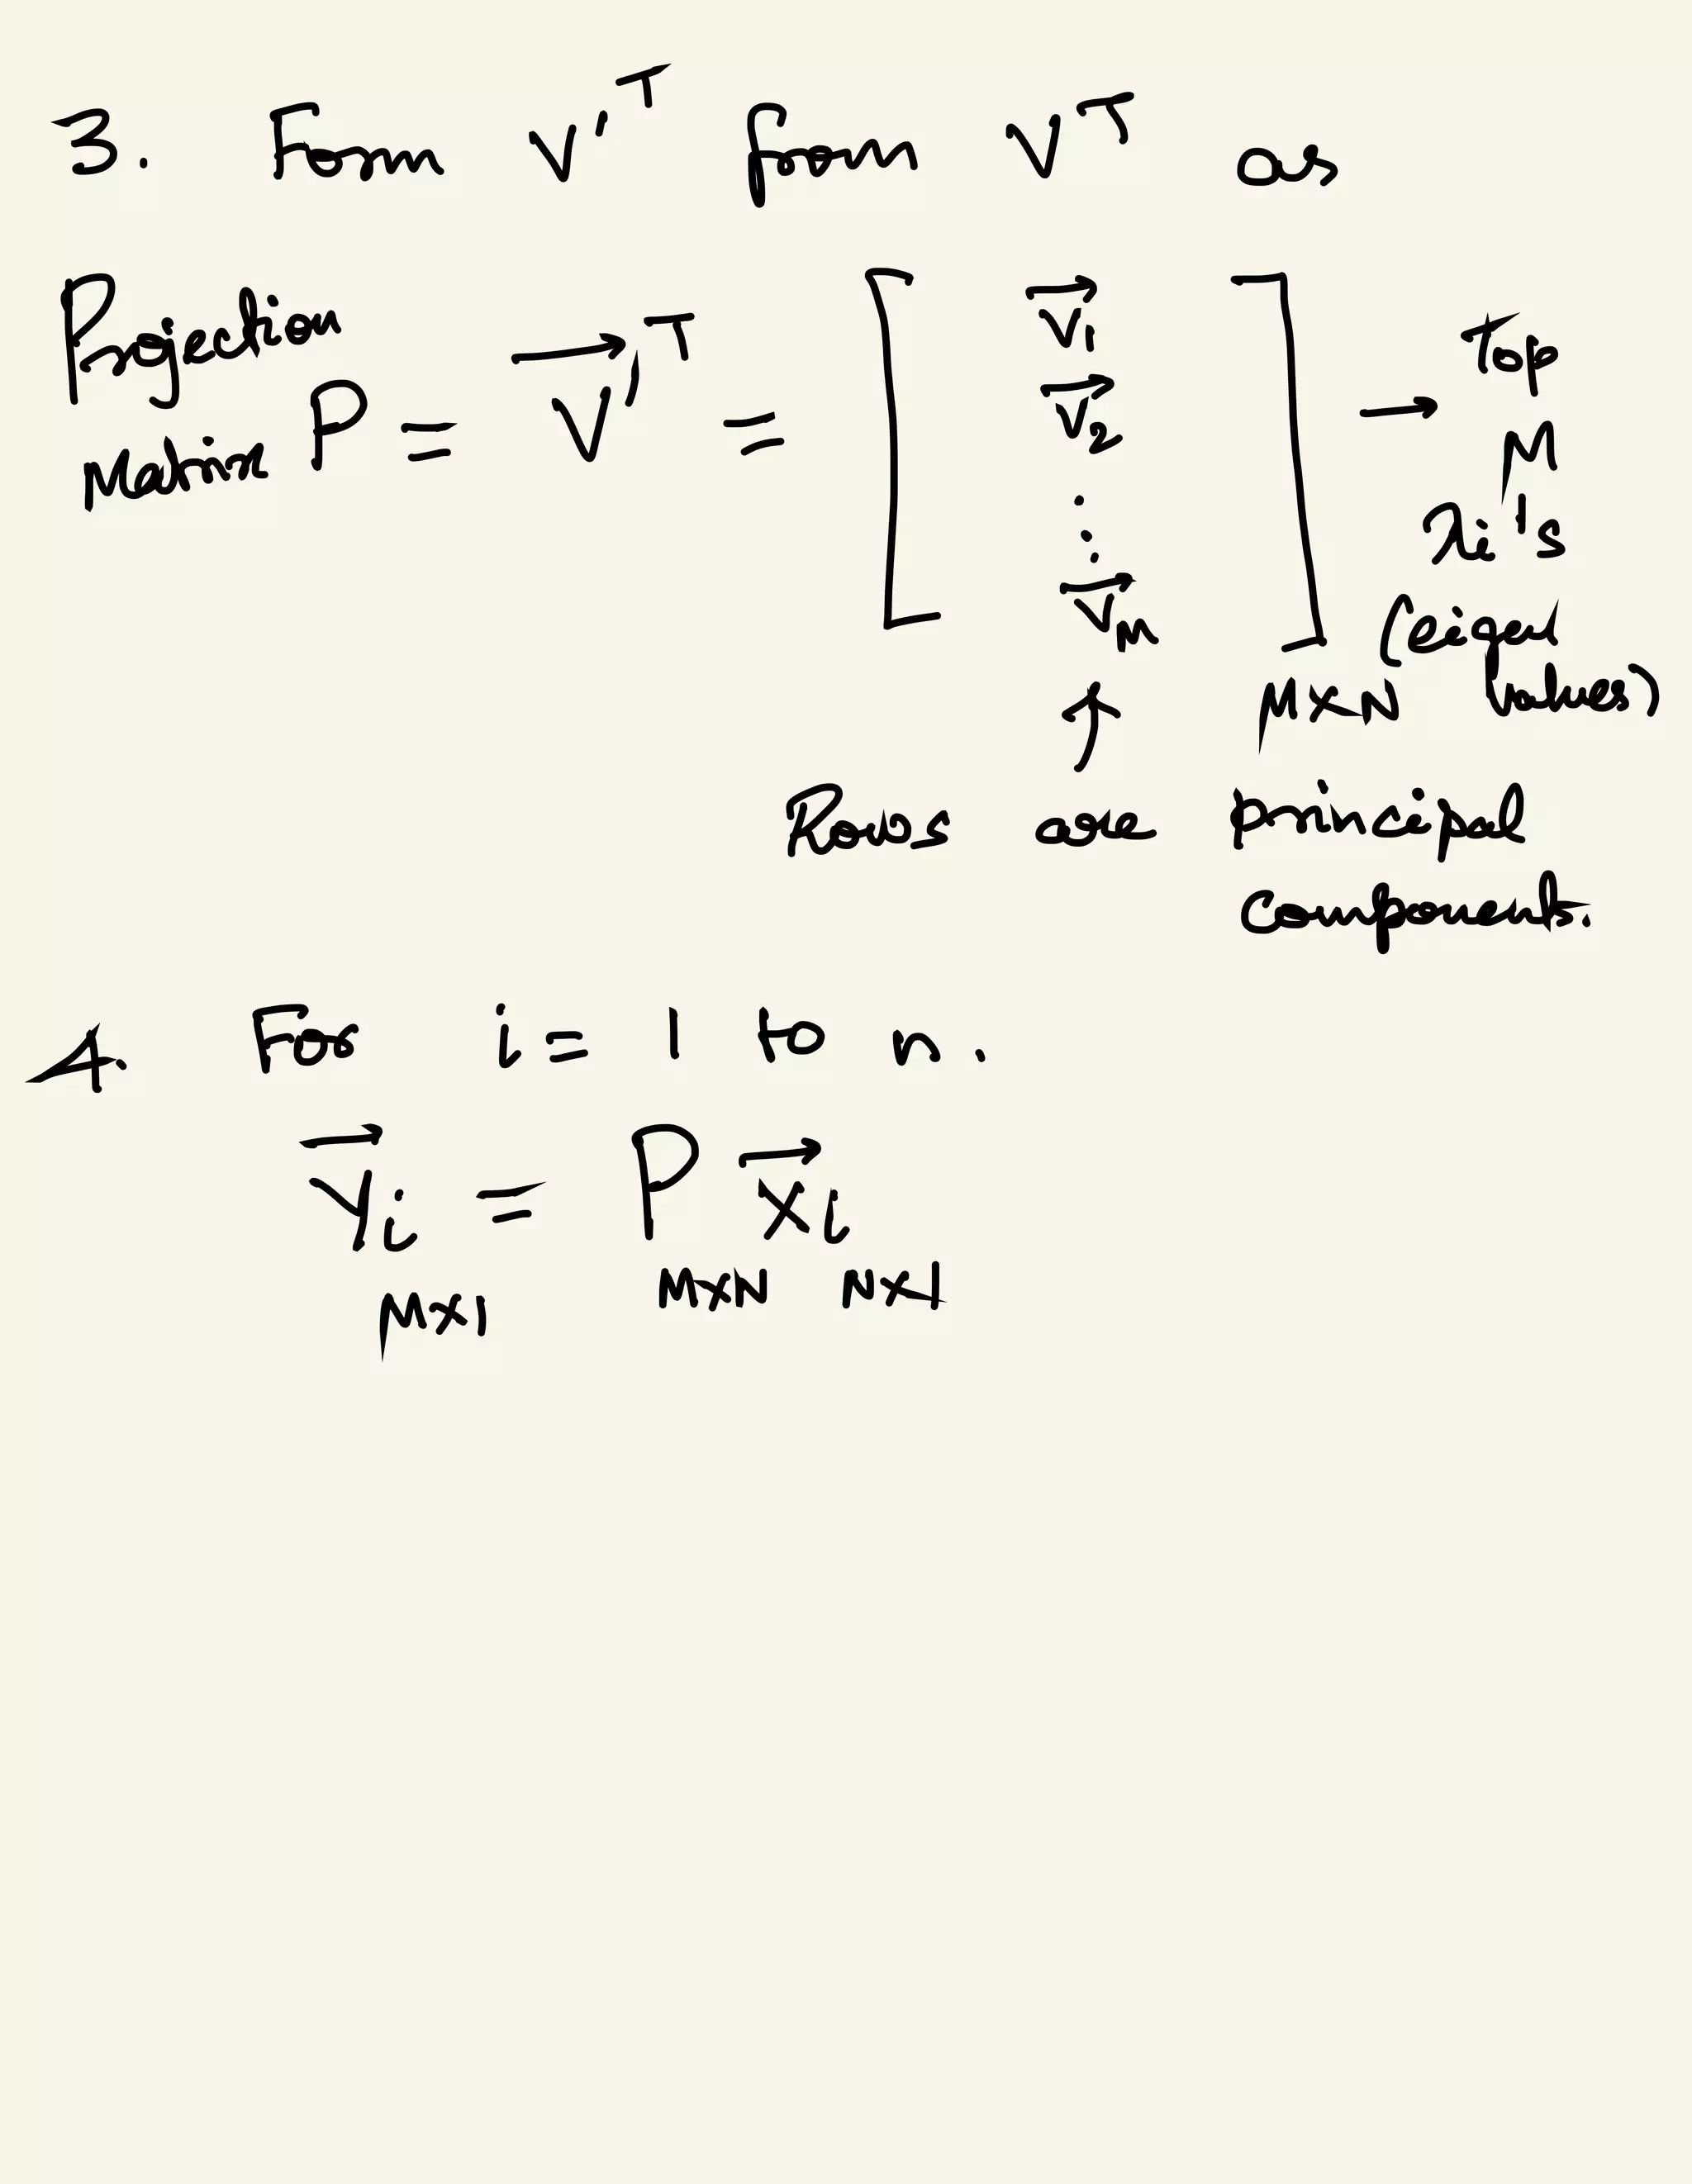 3. Form V'ᵀ from Vᵀ as
Projection
Matrix P = V⃗'ᵀ = [ v⃗₁
v⃗₂
⋮
v⃗ₘ ] M×N → top
M
λi's
(eigen
values)
↑
Rows are principal
components.
4. For i = 1 to n.
Y⃗i = P X⃗i
M×1 M×N N×1